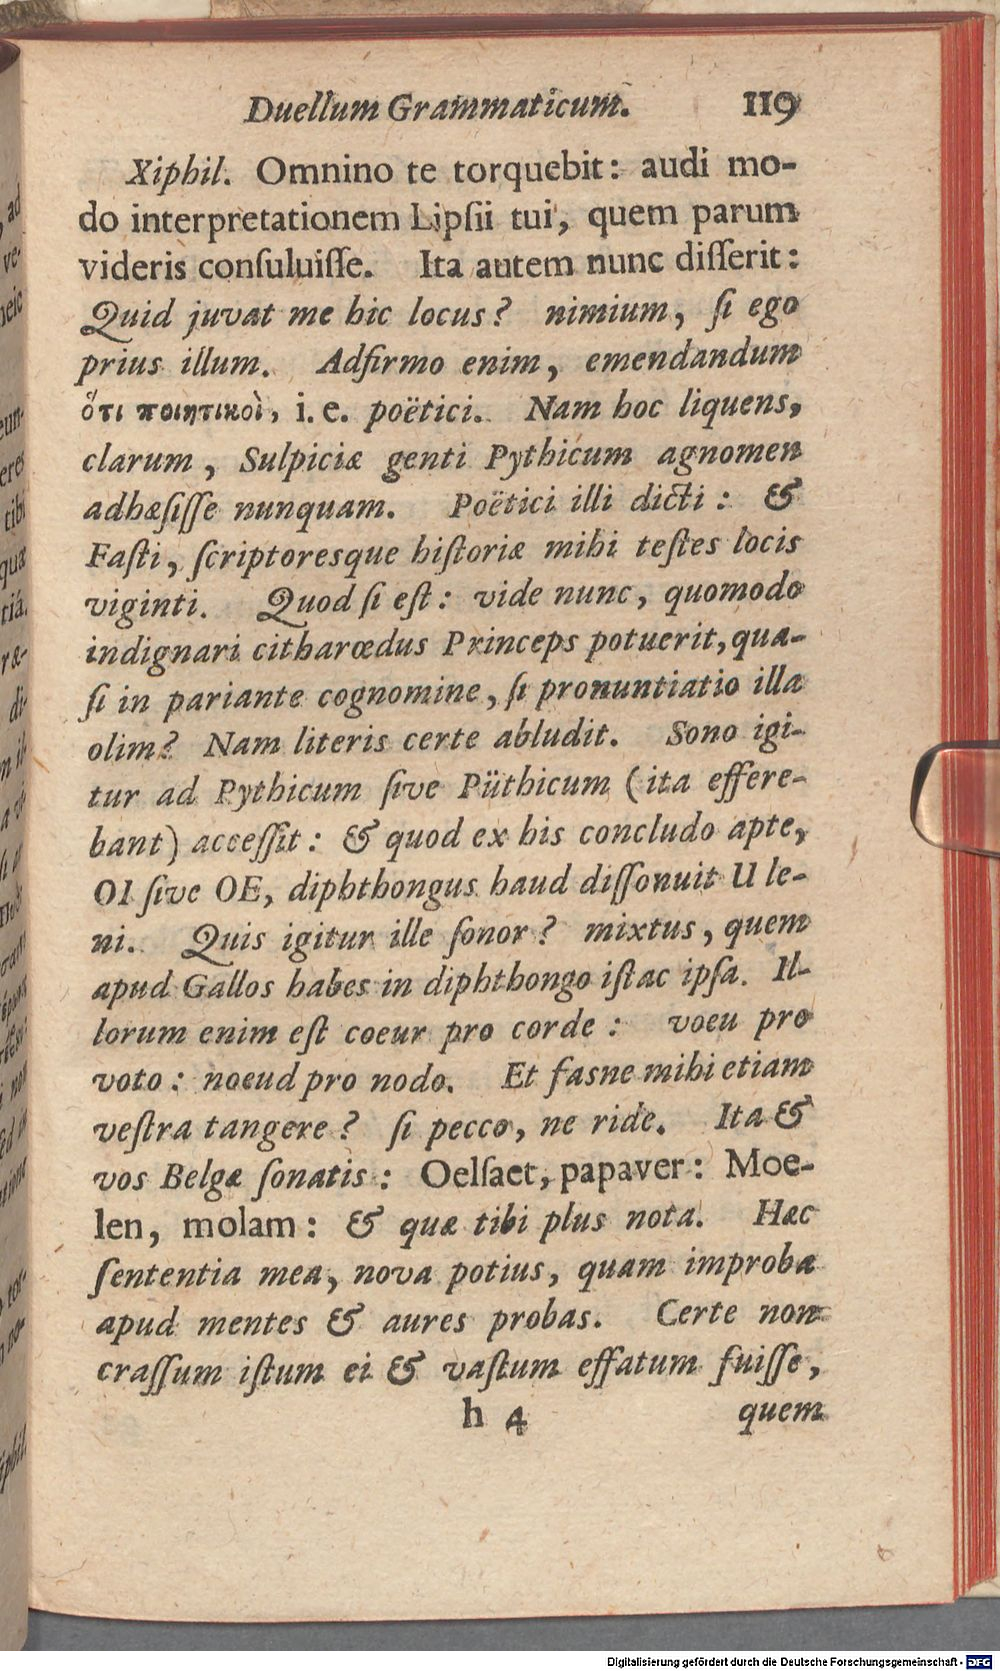 Duellum Grammaticum. 119
Xiphil. Omnino te torquebit: audi mo-
do interpretationem Lipſii tui, quem parum
videris conſuluiſſe. Ita autem nunc diſſerit:
Quid juvat me hic locus? nimium, ſi ego
prius illum. Adfirmo enim, emendandum
ὅτι ποιητικοὶ, i. e. poëtici. Nam hoc liquens,
clarum, Sulpiciæ genti Pythicum agnomen
adhæſiſſe nunquam. Poëtici illi dicti: &
Faſti, ſcriptoresque hiſtoriæ mihi teſtes locis
viginti. Quod ſi eſt: vide nunc, quomodo
indignari citharœdus Princeps potuerit, qua-
ſi in pariante cognomine, ſi pronuntiatio illa
olim? Nam literis certe abludit. Sono igi-
tur ad Pythicum ſive Püthicum (ita effere-
bant) acceſſit: & quod ex his concludo apte,
OI ſive OE, diphthongus haud diſſonuit U le-
ni. Quis igitur ille ſonor? mixtus, quem
apud Gallos habes in diphthongo iſtac ipſa. Il-
lorum enim eſt coeur pro corde: voeu pro
voto: noeud pro nodo. Et fasne mihi etiam
veſtra tangere? ſi pecco, ne ride. Ita &
vos Belgæ ſonatis: Oelſaet, papaver: Moe-
len, molam: & quæ tibi plus nota. Hæc
ſententia mea, nova potius, quam improba
apud mentes & aures probas. Certe non
craſſum iſtum ei & vaſtum effatum fuiſſe,
h 4 quem
Digitalisierung gefördert durch die Deutsche Forschungsgemeinschaft - DFG